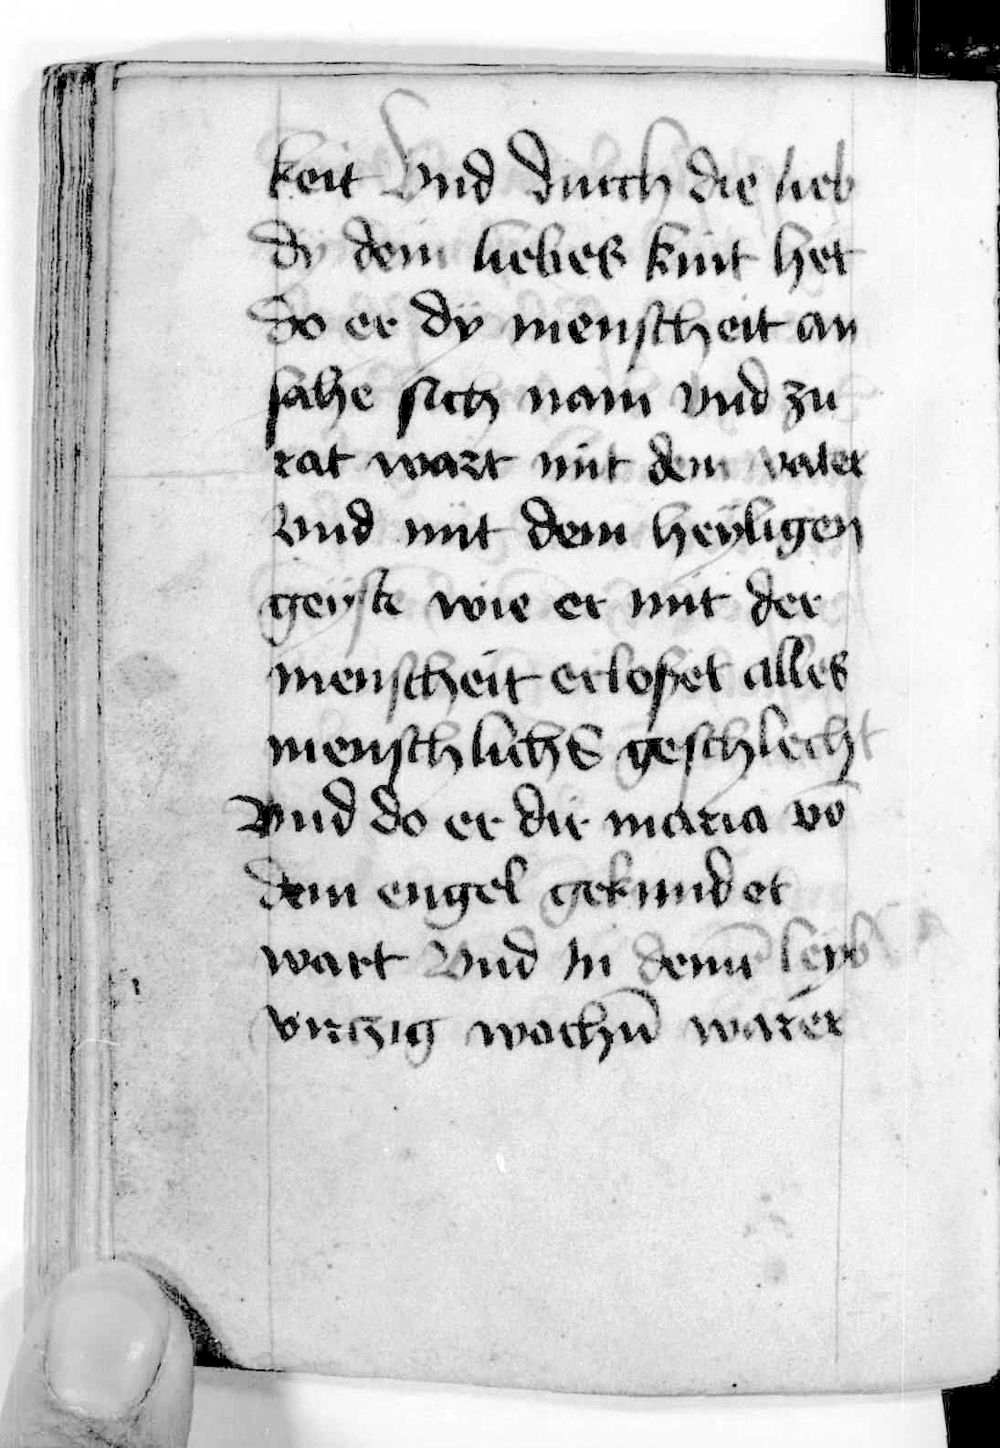 keit Vnd durch die lieb
dy dein liebes kint het
do er dy menscheit an
sahe sich nam vnd zu
rat wart mit dem vater
Vnd mit dem heÿligen
geÿst wie er mit der
menscheit erloßet alles
menschlichs geschlecht
Vnd do er dir maria vō
dem engel gekundet
wart Vnd In demē leyb
virczig wochn̄